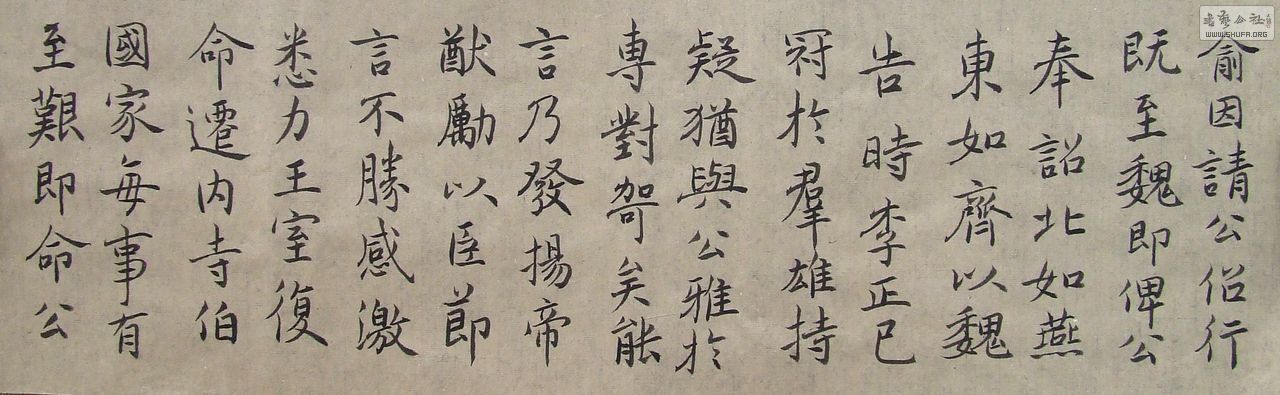 俞因請公侣行
既至魏即俾公
奉詔北如燕
東如齊以魏
告時李正已
冠於羣雄持
疑猶與公雅於
專對哿矣能
言乃發揚帝
猷勵以臣節
言不勝感激
悉力王室復
命遷内寺伯
國家每事有
至艱即命公
書藝公社
WWW.SHUFA.ORG